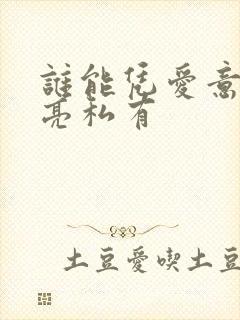 誰能凭愛意
亮私有
土豆愛喫土豆